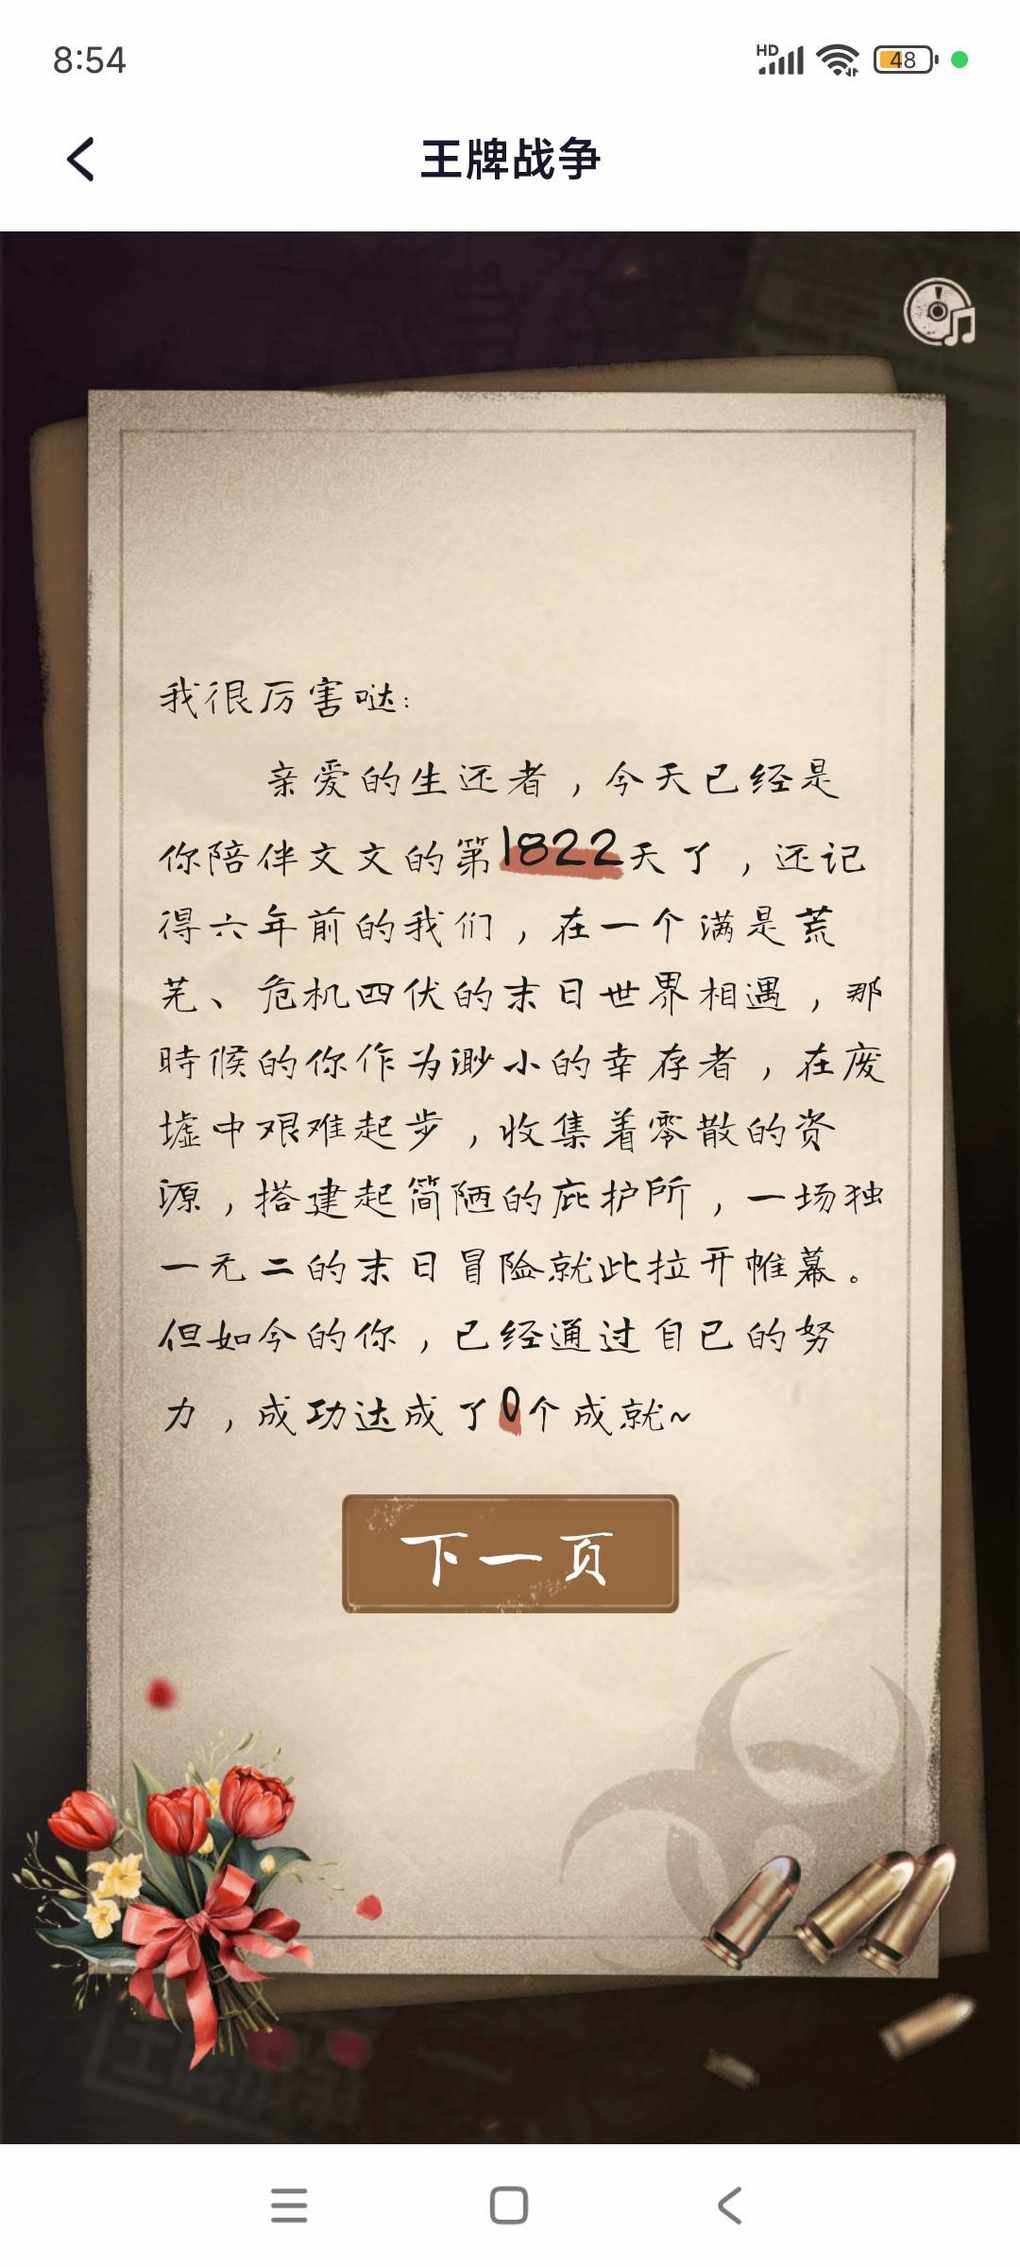 8:54
HD
48
王牌战争
我很厉害哒:
亲爱的生还者，今天已经是
你陪伴文文的第1822天了，还记
得六年前的我们，在一个满是荒
芜、危机四伏的末日世界相遇，那
時候的你作为渺小的幸存者，在废
墟中艰难起步，收集着零散的资
源，搭建起简陋的庇护所，一场独
一无二的末日冒险就此拉开帷幕。
但如今的你，已经通过自己的努
力，成功达成了0个成就~
下一页